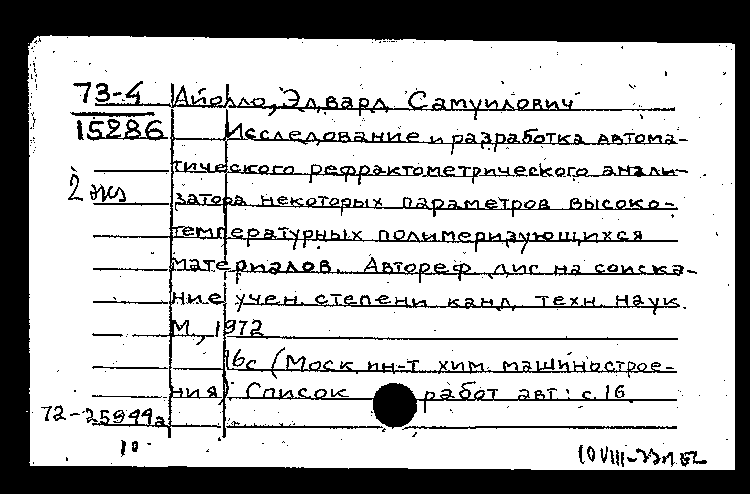 73-4
15286
2 экз
Айолло, Эдвард Самуилович
Исследование и разработка автома-
тического рефрактометрического анали-
затора некоторых параметров высоко-
температурных полимеризующихся
материалов. Автореф дис на соиска-
ние учен. степени канд. техн. наук.
М., 1972
16с (Моск ин-т хим. машинострое-
ния). Список работ авт: с.16.
72-25944а
10